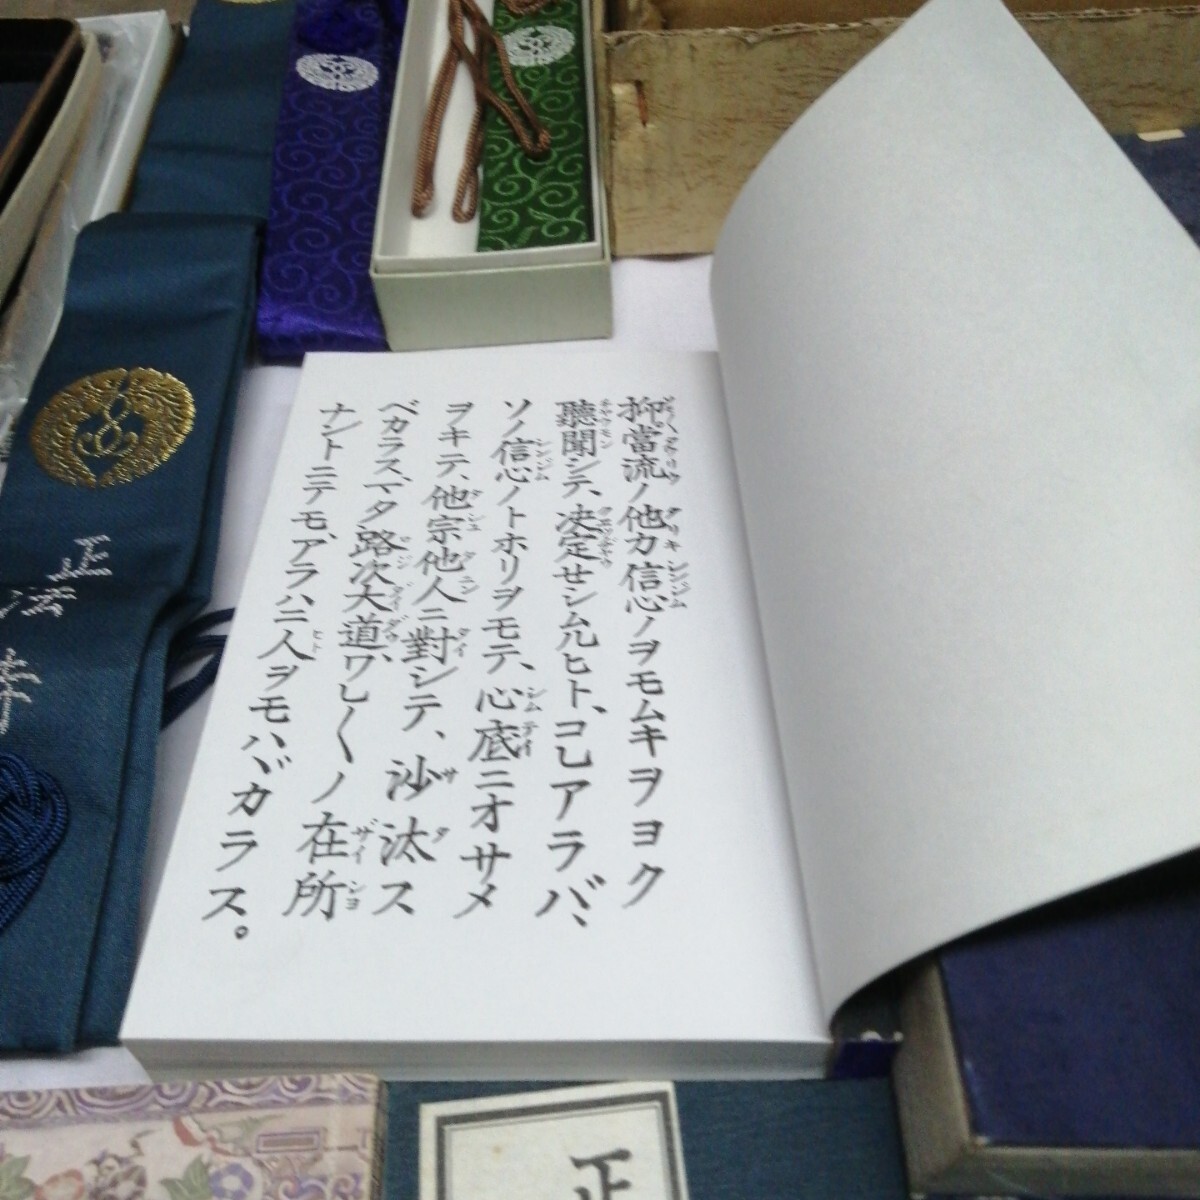 抑當流ノ他力信心ノヲモムキヲヨク
聽聞シテ、決定せシムルヒト、コレアラバ、
ソノ信心ノトホリヲモテ、心底ニオサメ
ヲキテ、他宗他人ニ對シテ、沙汰ス
ベカラス、マタ路次大道、ワレ〱ノ在所
ナントニテモ、アラハニ人ヲモハヾカラス。
正法寺
正